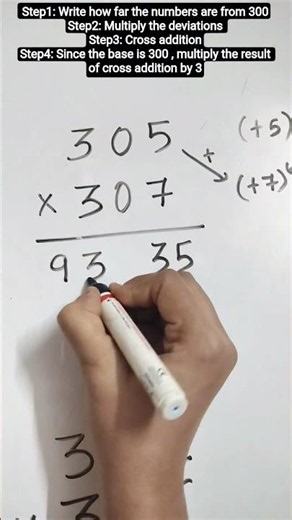 Step1: Write how far the numbers are from 300
Step2: Multiply the deviations
Step3: Cross addition
Step4: Since the base is 300 , multiply the result
of cross addition by 3
305 (+5)
+
× 307 (+7)
93 35
3
3